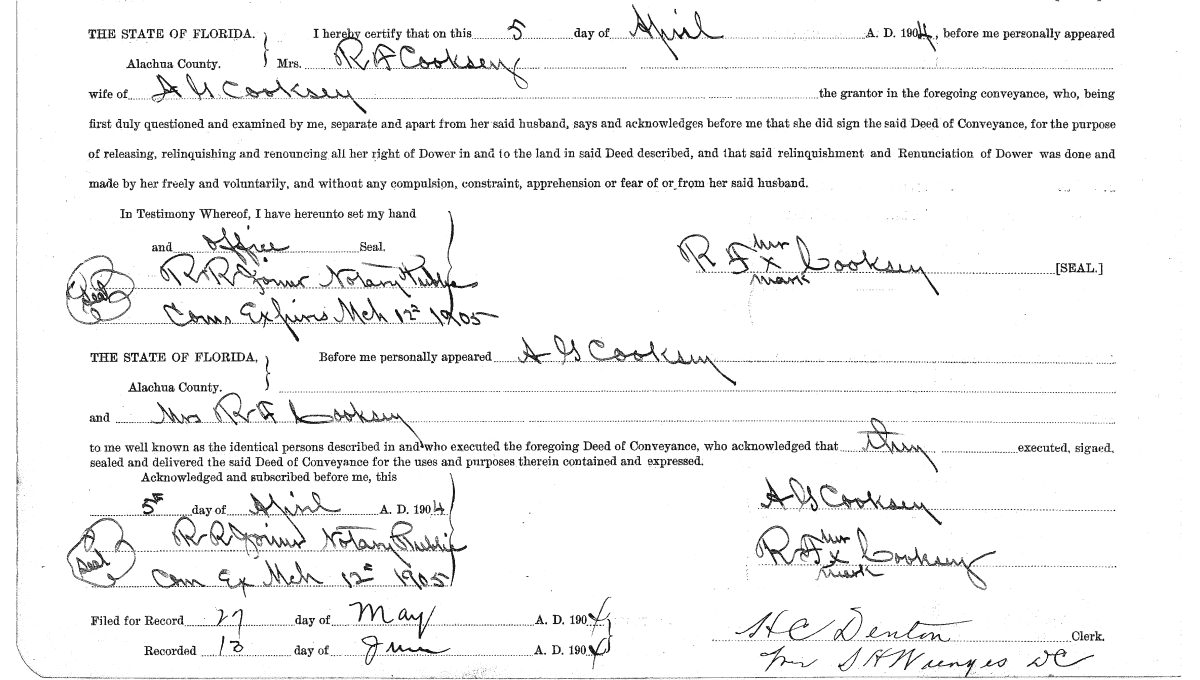 THE STATE OF FLORIDA. I hereby certify that on this 5 day of April A. D. 1904, before me personally appeared
Alachua County. Mrs. R F Cooksey
wife of A G Cooksey the grantor in the foregoing conveyance, who, being
first duly questioned and examined by me, separate and apart from her said husband, says and acknowledges before me that she did sign the said Deed of Conveyance, for the purpose
of releasing, relinquishing and renouncing all her right of Dower in and to the land in said Deed described, and that said relinquishment and Renunciation of Dower was done and
made by her freely and voluntarily, and without any compulsion, constraint, apprehension or fear of or from her said husband.
In Testimony Whereof, I have hereunto set my hand
and office Seal.
R F her x Cooksey [SEAL.]
mark
Seal R R Joiner Notary Public
Com Expires Mch 12" 1905
THE STATE OF FLORIDA, Before me personally appeared A G Cooksey
Alachua County.
and Mrs R F Cooksey
to me well known as the identical persons described in and who executed the foregoing Deed of Conveyance, who acknowledged that they executed, signed,
sealed and delivered the said Deed of Conveyance for the uses and purposes therein contained and expressed.
Acknowledged and subscribed before me, this
5th day of April A. D. 1904
A G Cooksey
Seal R R Joiner Notary Public
R F her x Cooksey
mark
Com Ex Mch 12" 1905
Filed for Record 27 day of May A. D. 1904
H C Denton Clerk.
Recorded 13 day of June A. D. 1904
per S H Wienges DC